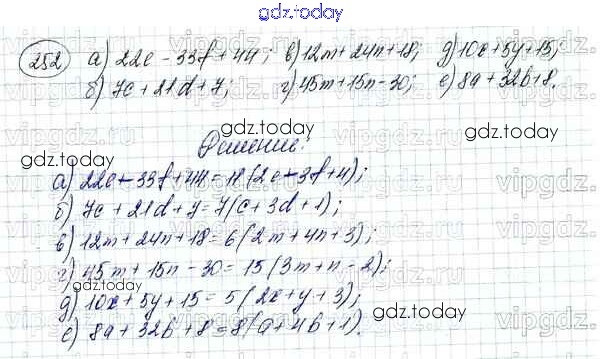 gdz.today
252 а) 22e - 33f + 44; в) 12m + 24n + 18; д) 10x + 5y + 15;
б) 7c + 21d + 7; г) 45m + 15n - 30; е) 8a + 32b + 8.
Решение:
а) 22e - 33f + 44 = 11(2e - 3f + 4);
б) 7c + 21d + 7 = 7(c + 3d + 1);
в) 12m + 24n + 18 = 6(2m + 4n + 3);
г) 45m + 15n - 30 = 15(3m + n - 2);
д) 10x + 5y + 15 = 5(2x + y + 3);
е) 8a + 32b + 8 = 8(a + 4b + 1).
gdz.today